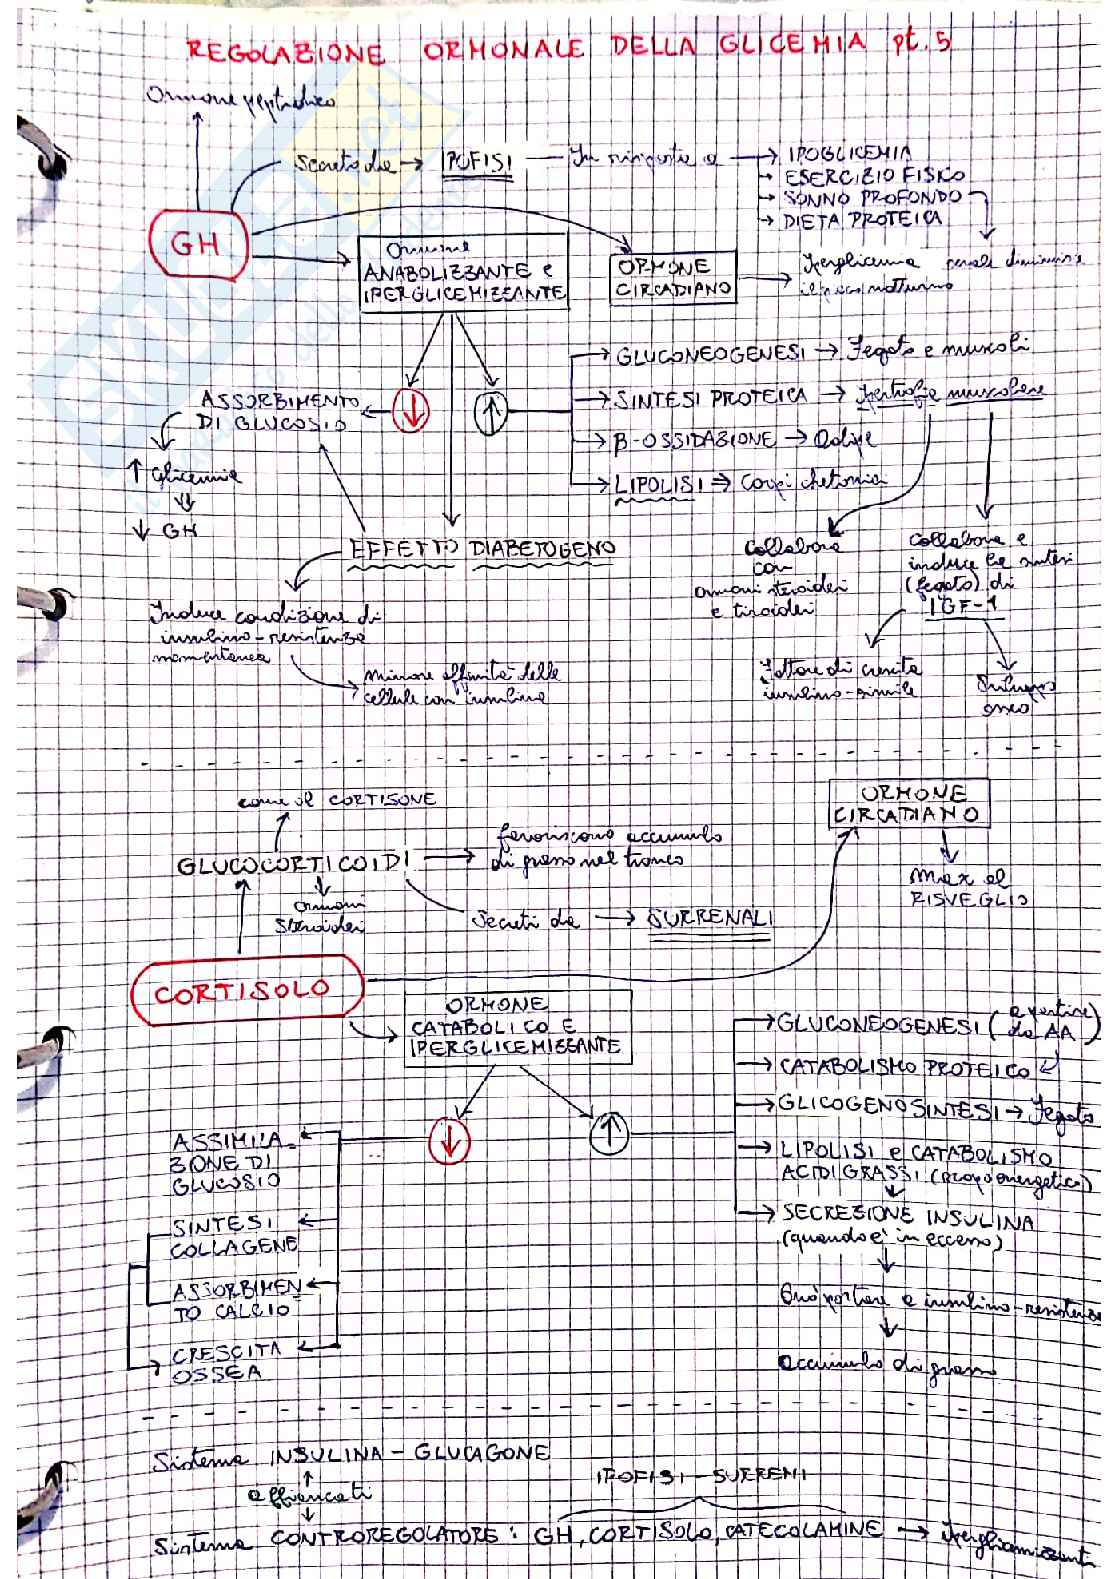 REGOLAZIONE ORMONALE DELLA GLICEMIA pt.5
Ormone peptidico
Secreto da → IPOFISI — In risposta a → IPOGLICEMIA
→ ESERCIZIO FISICO
→ SONNO PROFONDO
→ DIETA PROTEICA
GH
Ormone
ANABOLIZZANTE e
IPERGLICEMIZZANTE
ORMONE
CIRCADIANO
Iperglicemia
il picco notturno
→ GLUCONEOGENESI → Fegato e muscoli
→ SINTESI PROTEICA → Ipertrofia muscolare
→ β-OSSIDAZIONE → Adipe
→ LIPOLISI → Corpi chetonici
↓
↑
ASSORBIMENTO
DI GLUCOSIO
↑ Glicemia
↓ GH
EFFETTO DIABETOGENO
Induce condizione di
insulino-resistenza
momentanea
minore affinità delle
cellule con insulina
Collabora
con
ormoni steroidei
e tiroidei
Collabora e
induce la sintesi
(fegato) di
IGF-1
Fattore di crescita
insulino-simile
Sviluppo
osseo
come il CORTISONE
GLUCOCORTICOIDI
→ favoriscono accumulo
di grasso nel tronco
ormoni
steroidei
Secreti da → SURRENALI
ORMONE
CIRCADIANO
Max al
RISVEGLIO
CORTISOLO
ORMONE
CATABOLICO E
IPERGLICEMIZZANTE
→ GLUCONEOGENESI (a partire
da AA)
→ CATABOLISMO PROTEICO
→ GLICOGENOSINTESI → Fegato
→ LIPOLISI e CATABOLISMO
ACIDI GRASSI (scopo energetico)
→ SECREZIONE INSULINA
(quando è in eccesso)
Può portare a insulino-resistenza
accumulo di grasso
↓
↑
ASSIMILA-
ZIONE DI
GLUCOSIO
SINTESI
COLLAGENE
ASSORBIMEN
TO CALCIO
CRESCITA
OSSEA
Sistema INSULINA - GLUCAGONE
affiancati
IPOFISI - SURRENI
Sistema CONTROREGOLATORE: GH, CORTISOLO, CATECOLAMINE → Iperglicemizzanti